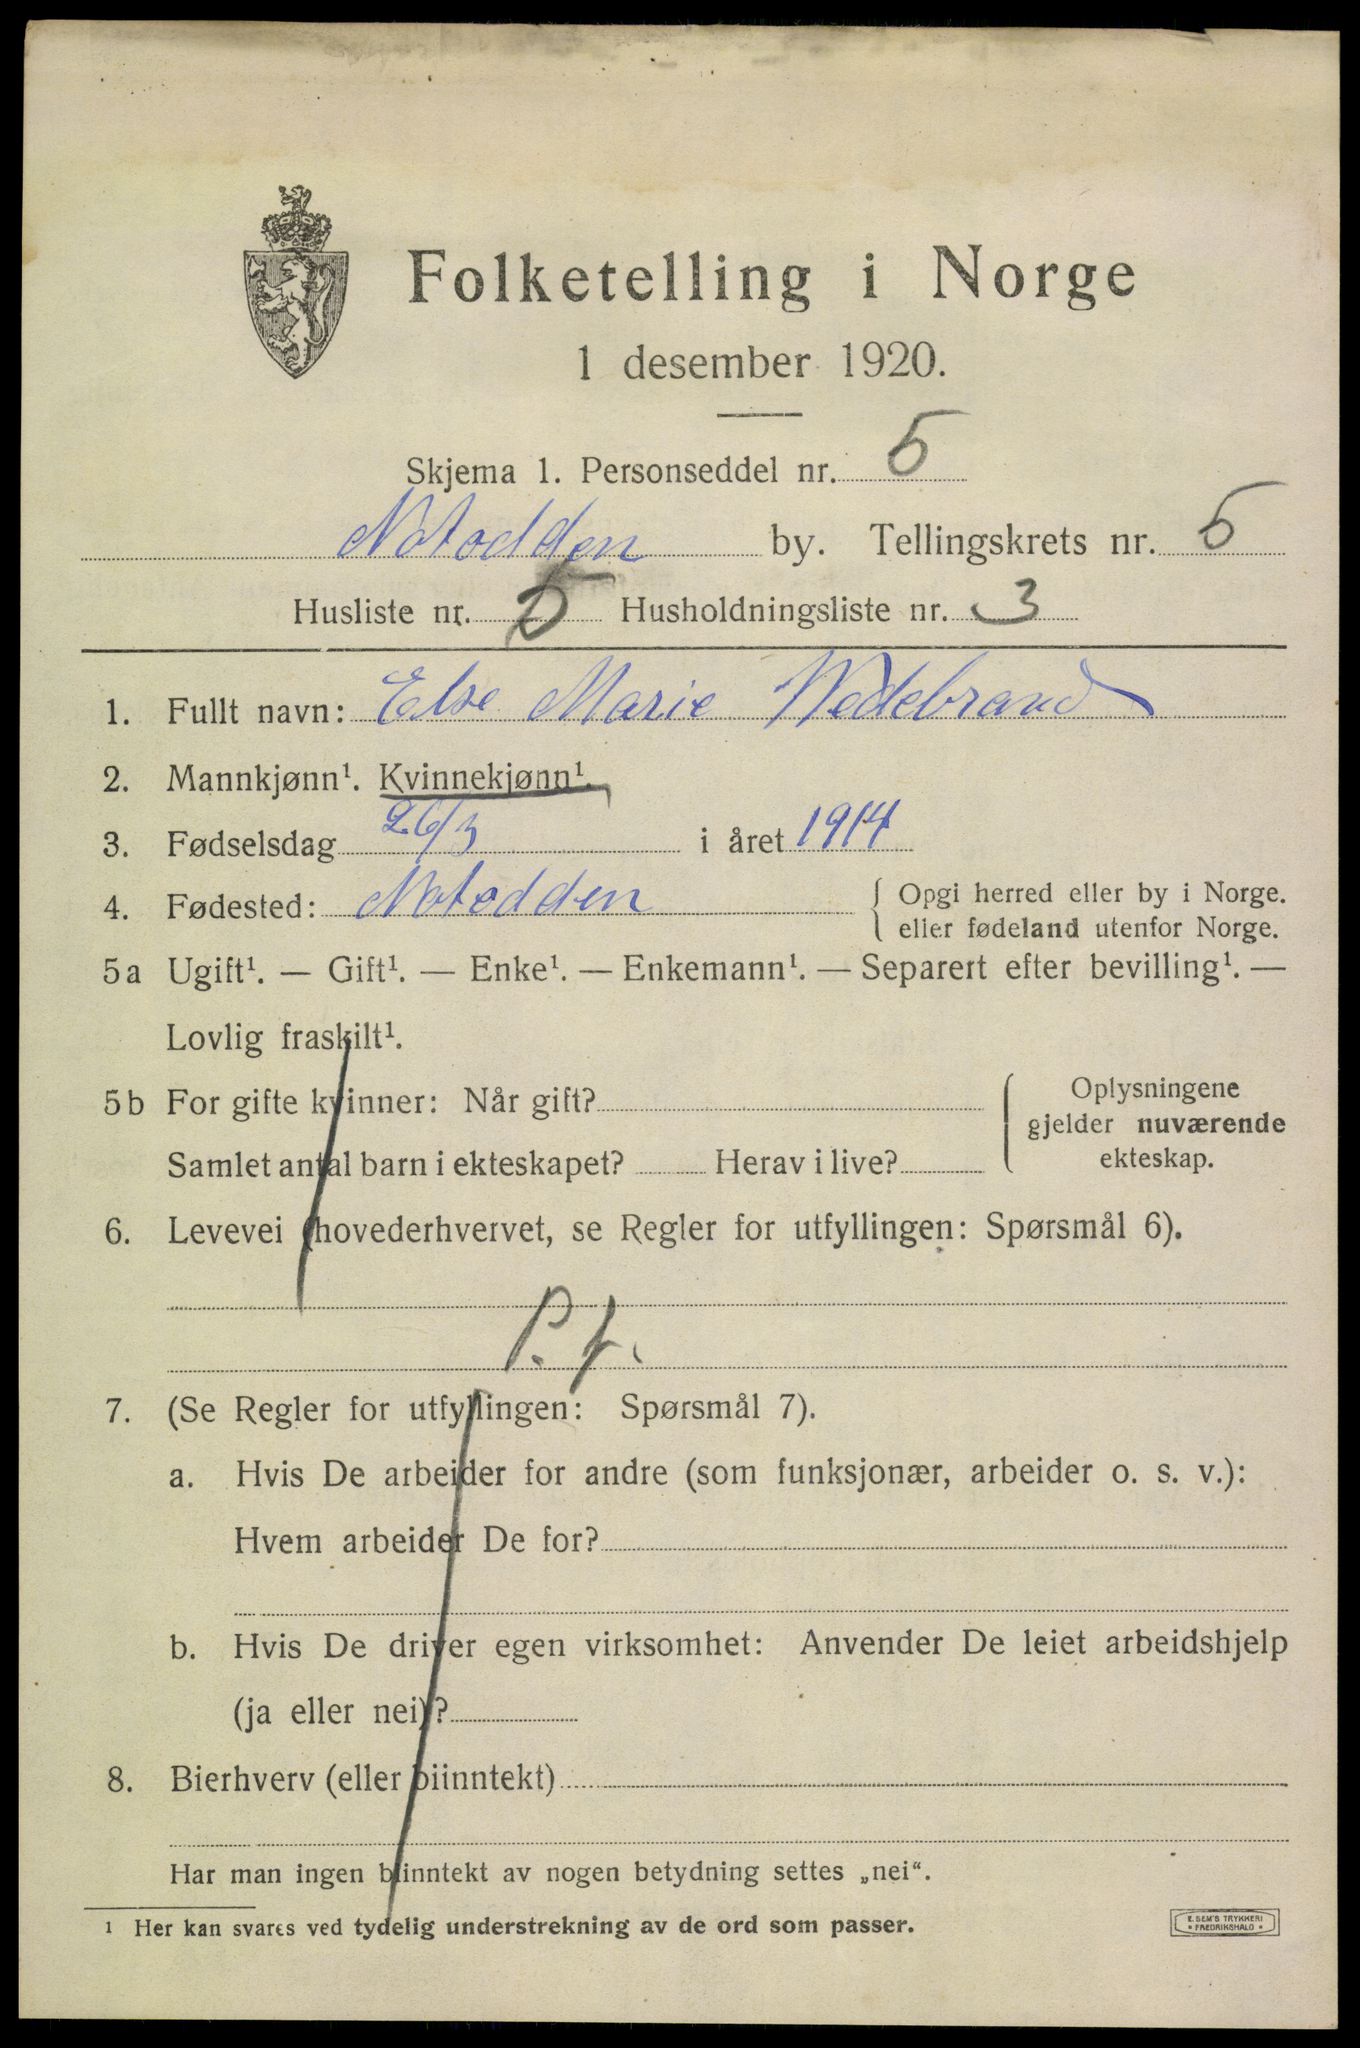 Folketelling i Norge
1 desember 1920.
Skjema 1. Personseddel nr. 5
Notodden by. Tellingskrets nr. 5
Husliste nr. 5 Husholdningsliste nr. 3
1. Fullt navn: Else Marie Wedebrand
2. Mannkjønn¹. Kvinnekjønn¹.
3. Fødselsdag 26/3 i året 1914
4. Fødested: Notodden { Opgi herred eller by i Norge.
eller fødeland utenfor Norge.
5a Ugift¹. — Gift¹. — Enke¹. — Enkemann¹. — Separert efter bevilling¹. —
Lovlig fraskilt¹.
5b For gifte kvinner: Når gift?
Samlet antal barn i ekteskapet? Herav i live?
{ Oplysningene
gjelder nuværende
ekteskap.
6. Levevei (hovederhvervet, se Regler for utfyllingen: Spørsmål 6).
P. f.
7. (Se Regler for utfyllingen: Spørsmål 7).
a. Hvis De arbeider for andre (som funksjonær, arbeider o. s. v.):
Hvem arbeider De for?
b. Hvis De driver egen virksomhet: Anvender De leiet arbeidshjelp
(ja eller nei)?
8. Bierhverv (eller biinntekt)
Har man ingen biinntekt av nogen betydning settes „nei“.
¹ Her kan svares ved tydelig understrekning av de ord som passer.
E. SEM'S TRYKKERI
• FREDRIKSHALD •